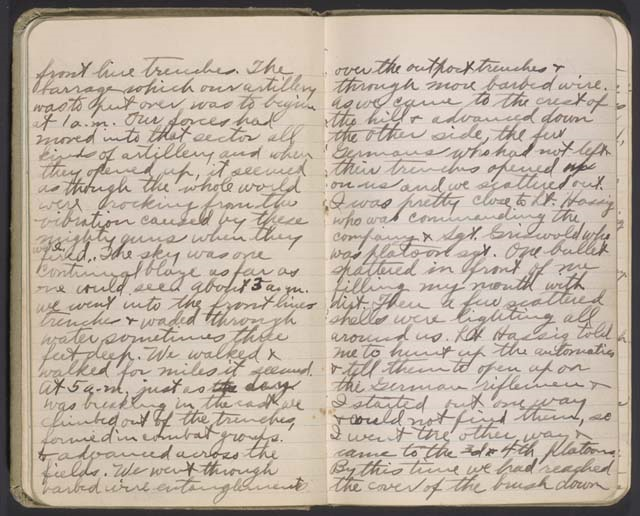 front line trenches. The
barrage which our artillery
was to put over, was to begin
at 1 a.m. Our forces had
moved into that sector all
kinds of artillery and when
they opened up, it seemed
as though the whole world
were rocking from the
vibration caused by these
mighty guns when they
were fired. The sky was one
continual blaze as far as
one could see. About 3 a.m.
we went into the front lines
trenches & waded through
water sometimes three
feet deep. We walked &
walked for miles it seemed.
At 5 a.m. just as
was breaking in the east we
climbed out of the trenches,
formed in combat groups.
& advanced across the
fields. We went through
barbed wire entanglements
over the outpost trenches &
through more barbed wire.
As we came to the crest of
the hill & advanced down
the other side, the few
Germans who had not left
their trenches opened up
on us and we scattered out.
I was pretty close to Lt. Hassig
who was commanding the
company & Sgt. Griswold who
was platoon sgt. One bullet
spattered in front of me
filling my mouth with
dirt. Then a few scattered
shells were lighting all
around us. Lt Hassig told
me to hunt up the automatics
& tell them to open up on
the German riflemen &
I started out one way
& could not find them, so
I went the other way &
came to the 3d & 4th platoons
By this time we had reached
the cover of the brush down